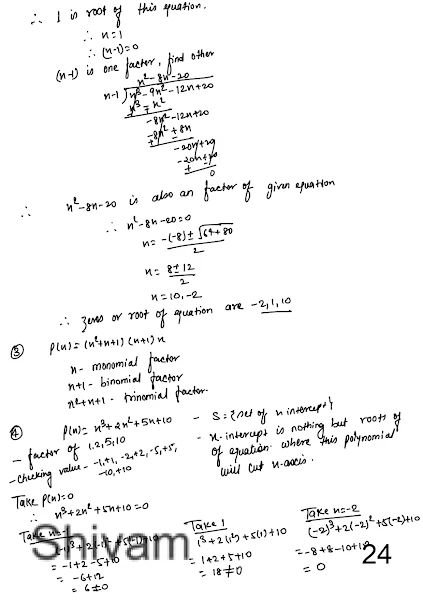 ∴ 1 is root of this equation.
∴ n=1
∴ (n-1)=0
(n-1) is one factor, find other
n²-8n-20
n-1 √ n³-9n²-12n+20
n³-n²
- +
-8n²-12n+20
-8n²+8n
+ -
-20n+20
-20n+20
+ -
0
∴ n²-8n-20 is also an factor of given equation
∴ n²-8n-20=0
n= -(-8)±√64+80 / 2
n= 8±12 / 2
n=10,-2
∴ zeros or root of equation are -2,1,10
③ P(n)=(n²+n+1)(n+1)n
n - monomial factor
n+1 - binomial factor
n²+n+1 - trinomial factor.
④ P(n)=n³+2n²+5n+10
- factor of 1,2,5,10
- Checking value - -1,+1,-2,+2,-5,+5,
-10,+10
Take P(n)=0
∴ n³+2n²+5n+10=0
- S={set of n intercept}
- n-intercept is nothing but roots of
of equation where this polynomial
will cut n-axis.
Take n=-1
(-1)³+2(-1)²+5(-1)+10
= -1+2-5+10
= -6+12
= 6≠0
Take 1
1³+2(1²)+5(1)+10
= 1+2+5+10
= 18≠0
Take n=-2
(-2)³+2(-2)²+5(-2)+10
= -8+8-10+10
= 0
Shivam
24